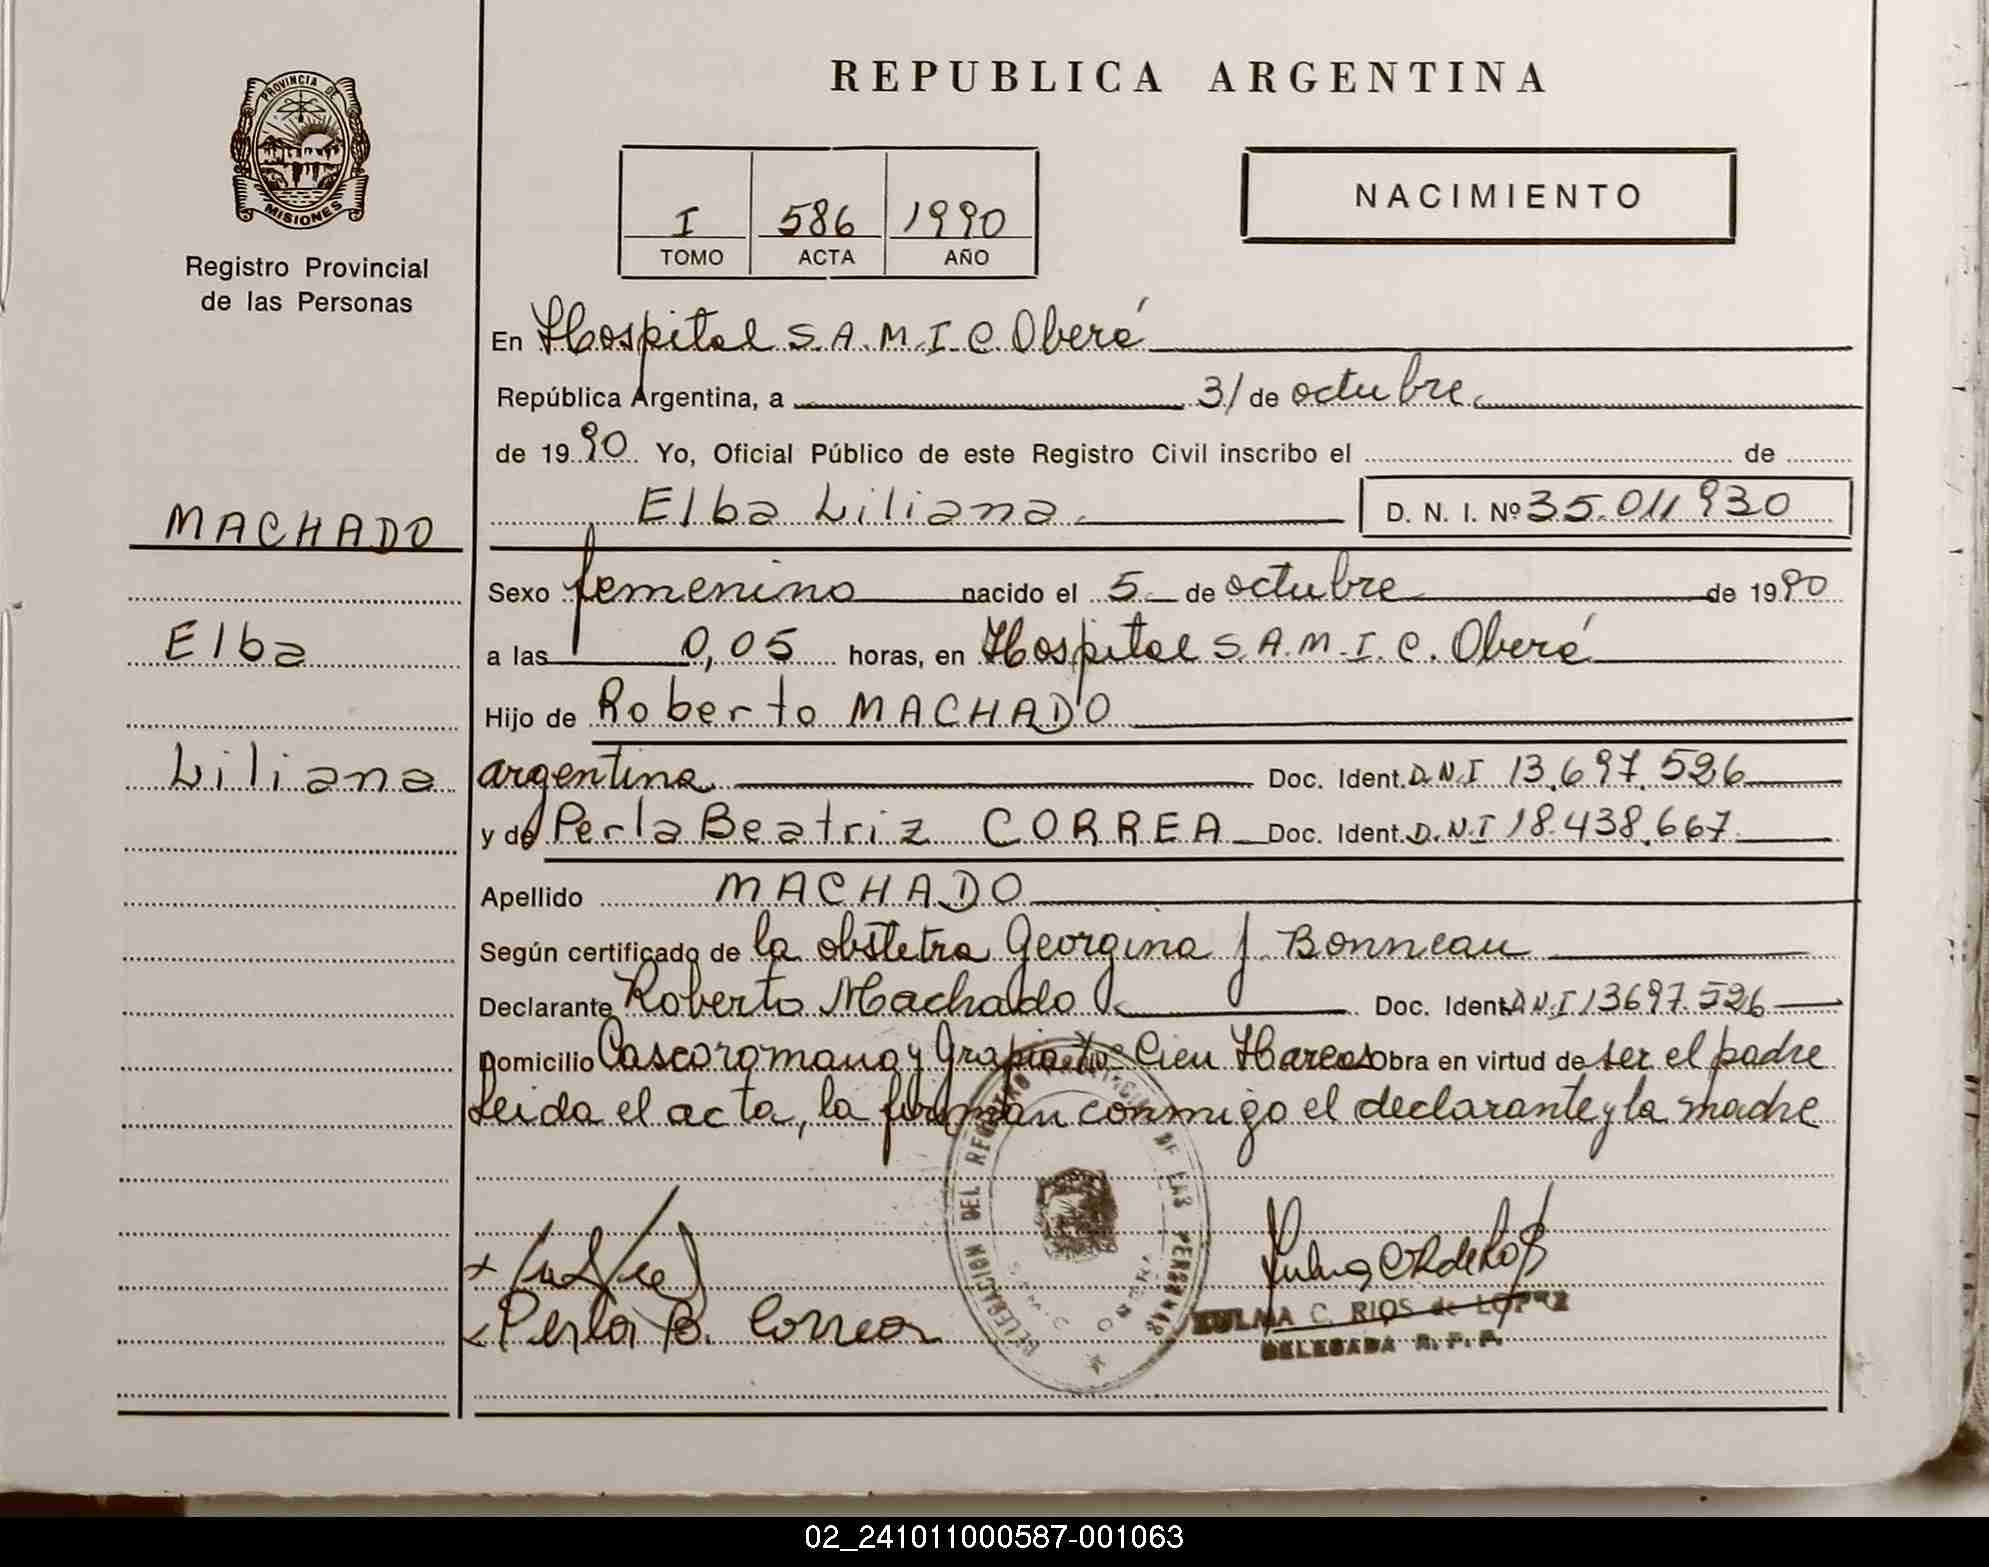 PROVINCIA DE
MISIONES
Registro Provincial
de las Personas
REPUBLICA ARGENTINA
I 586 1990
TOMO ACTA AÑO
NACIMIENTO
En Hospital S.A.M.I.C Oberá
República Argentina, a 31 de octubre
de 1990 Yo, Oficial Público de este Registro Civil inscribo el de
Elba Liliana D. N. I. Nº 35.011.930
MACHADO
Elba
Liliana
Sexo femenino nacido el 5 de octubre de 1990
a las 0,05 horas, en Hospital S.A.M.I.C. Oberá
Hijo de Roberto MACHADO
argentina Doc. Ident. D.N.I 13.697.526
y de Perla Beatriz CORREA Doc. Ident. D.N.I 18.438.667
Apellido MACHADO
Según certificado de la obstetra Georgina J. Bonneau
Declarante Roberto Machado Doc. Ident. D.N.I 13697.526
Domicilio y Cien Hareas obra en virtud de ser el padre
Leida el acta, la firman conmigo el declarante y la madre
DELEGACION DEL REGISTRO PROVINCIAL DE LAS PERSONAS
Perla B. Correa
ZULMA C. RIOS de LOPEZ
DELEGADA R. P. P.
02_241011000587-001063